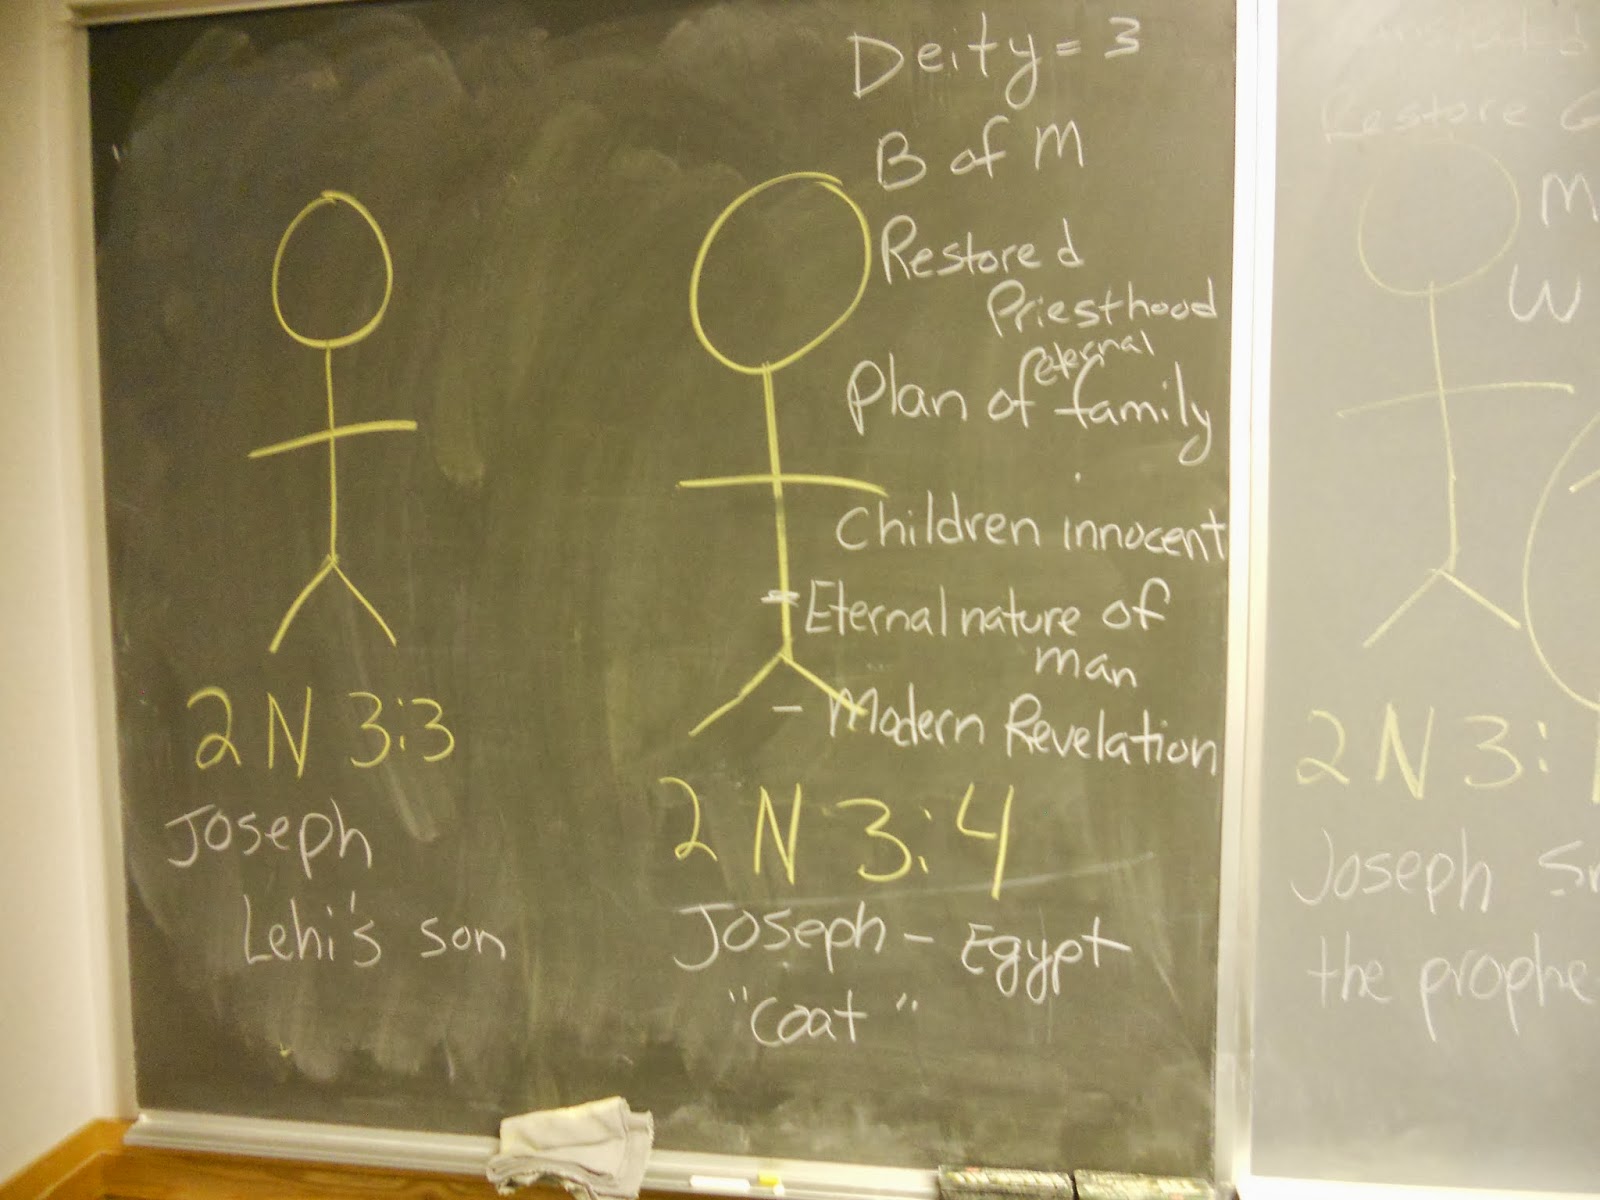 2 N 3:3
Joseph
Lehi's son
Deity = 3
B of M
Restored
Priesthood
eternal
Plan of family
Children innocent
- Eternal nature of
man
- Modern Revelation
2 N 3:4
Joseph - Egypt
"Coat"
Restore
M
W
2 N 3:
Joseph
the